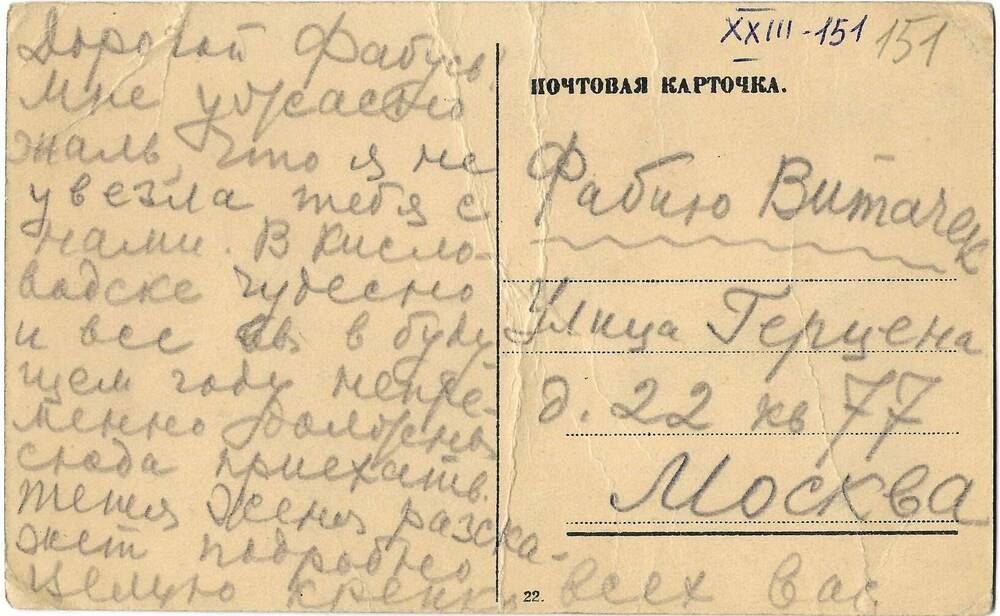 Дорогой Фабусь!
Мне ужасно
жаль, что я не
увезла тебя с
нами. В Кисло-
водске чудесно
и все вы в буду
щем году непре-
менно должны
сюда приехать.
Тетя Женя разска-
жет подробно
Целую крепко всех вас
XXIII-151 151
ПОЧТОВАЯ КАРТОЧКА.
Фабию Витачек
Улица Герцена
д. 22 кв 77
Москва
22.